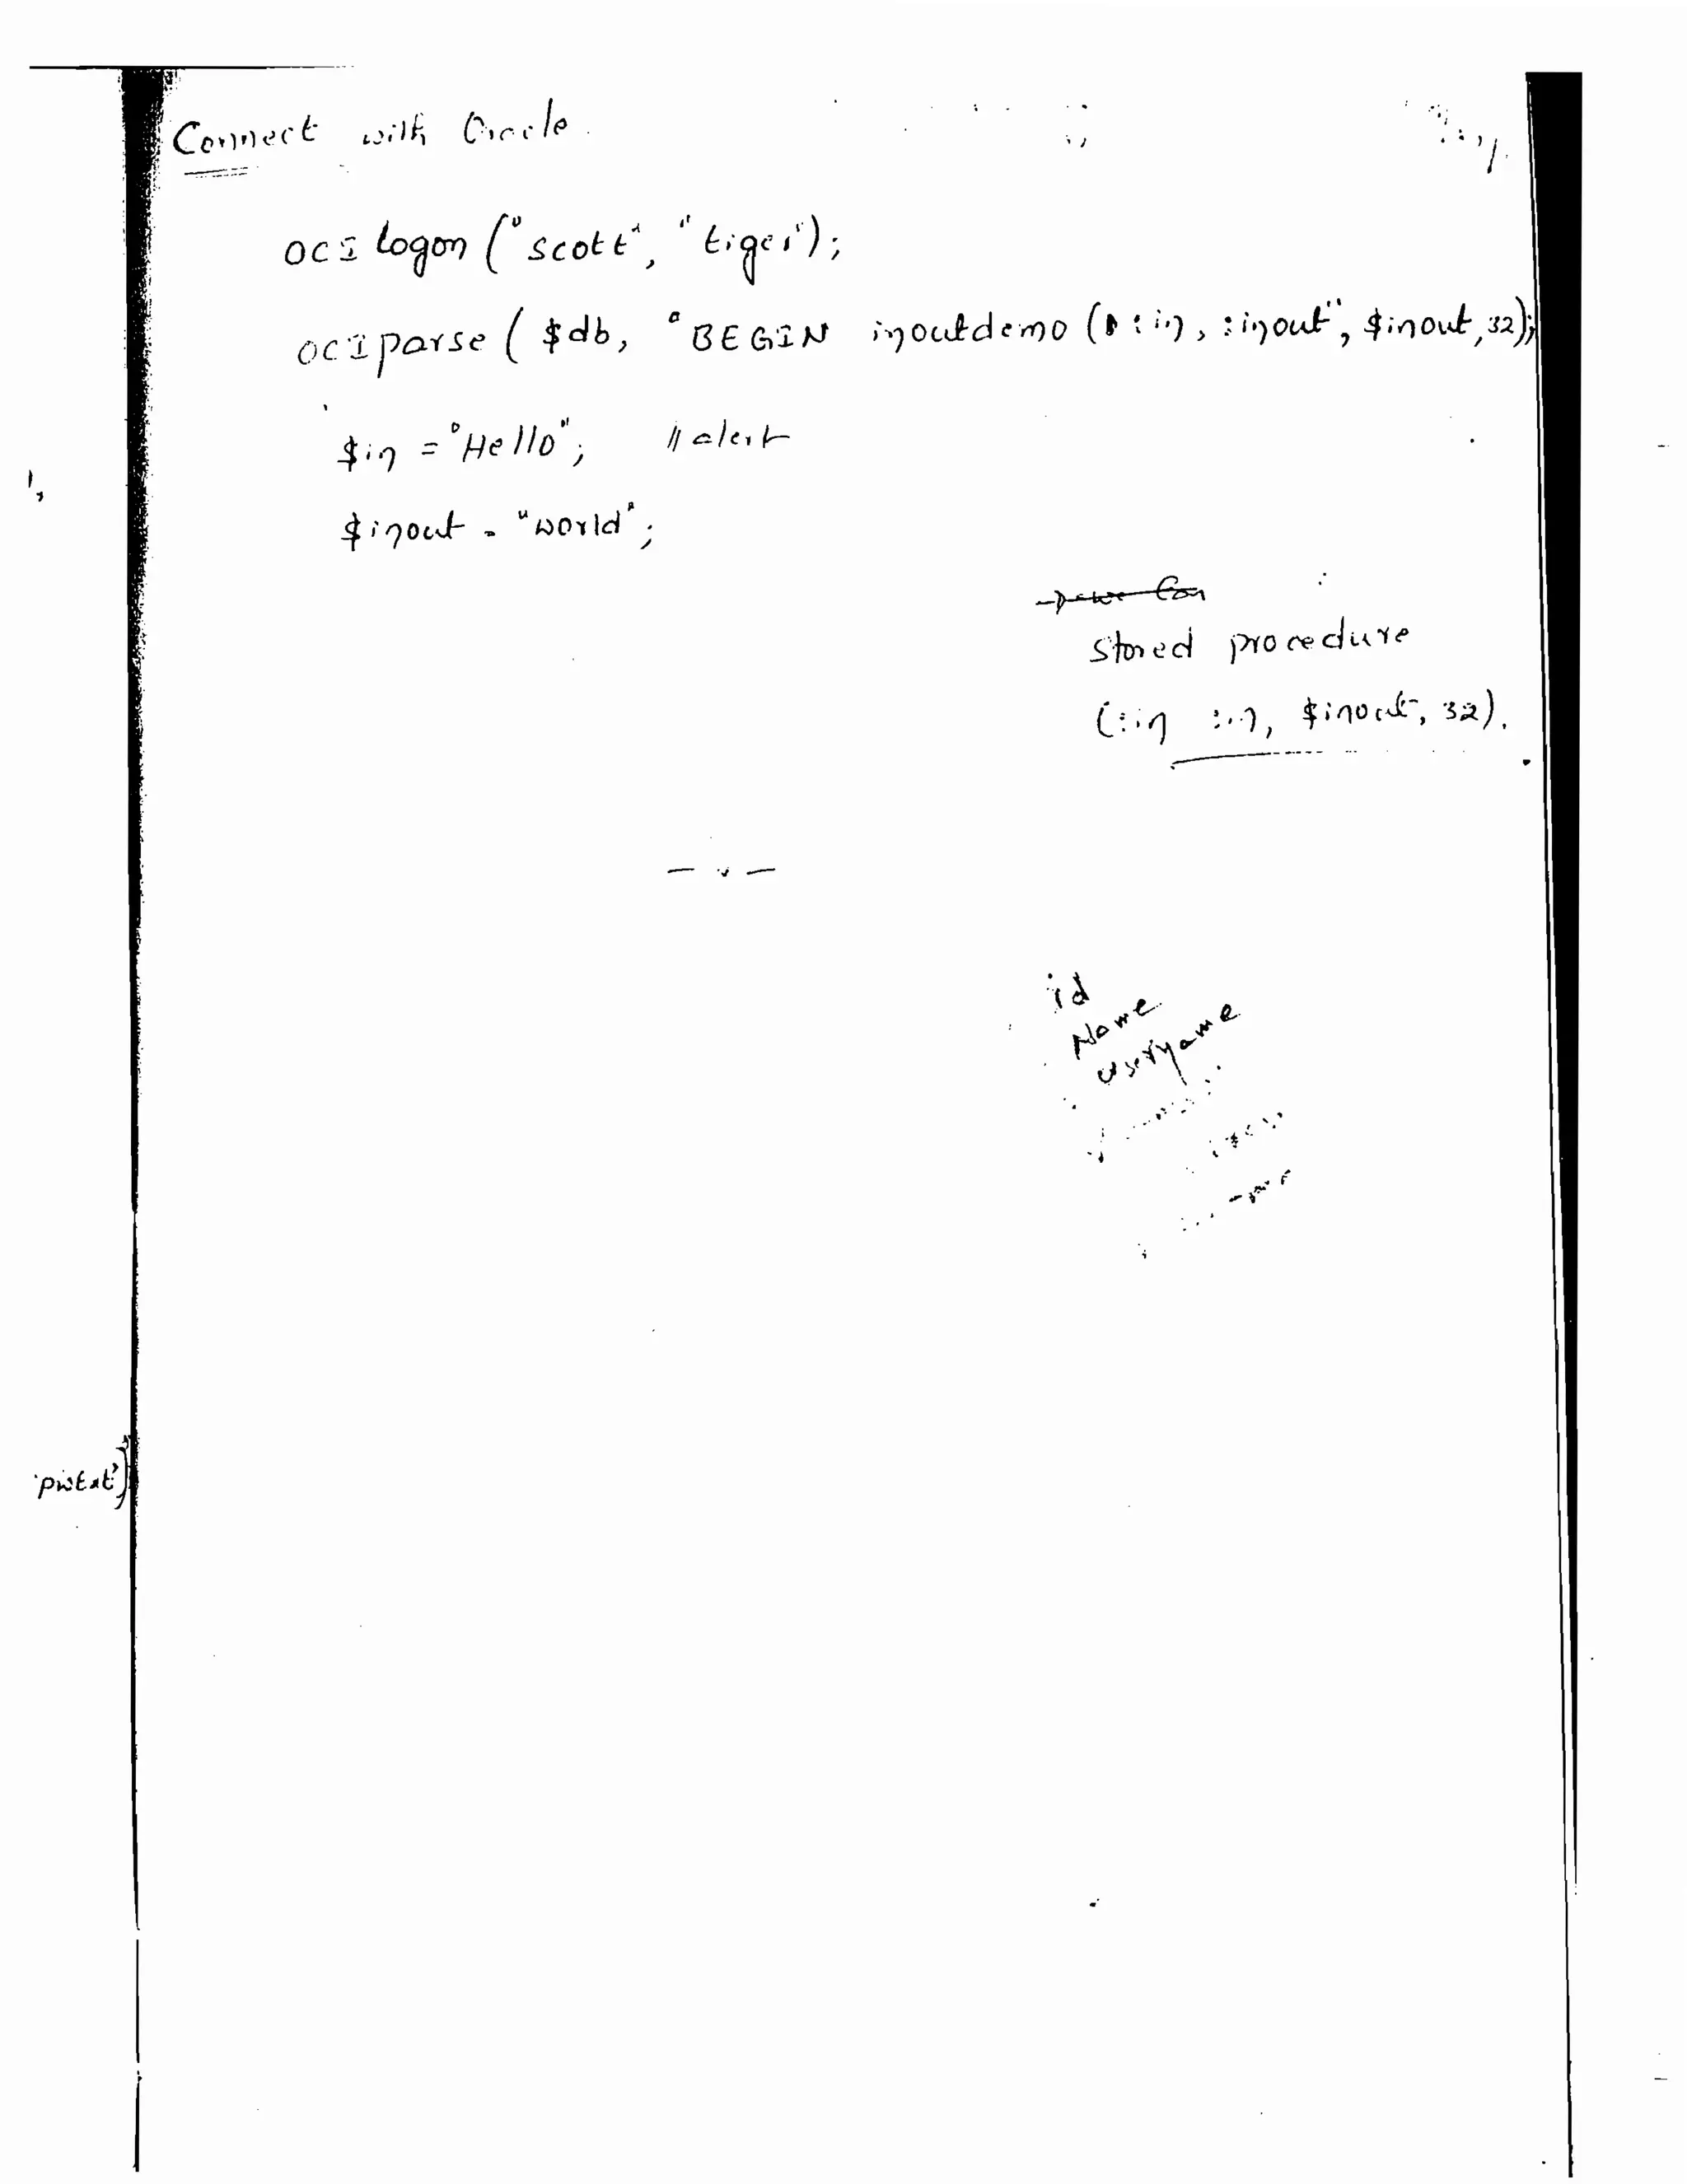 Connect with Oracle.
OCI logon ("scott", "tiger");
OCI parse ( $db, "BEGIN inoutdemo (: in, : inout", $inout, 32);
$in = "Hello"; // alert
$inout = "world";
stored procedure
(:in :in, $inout, 32).
id
Name
username